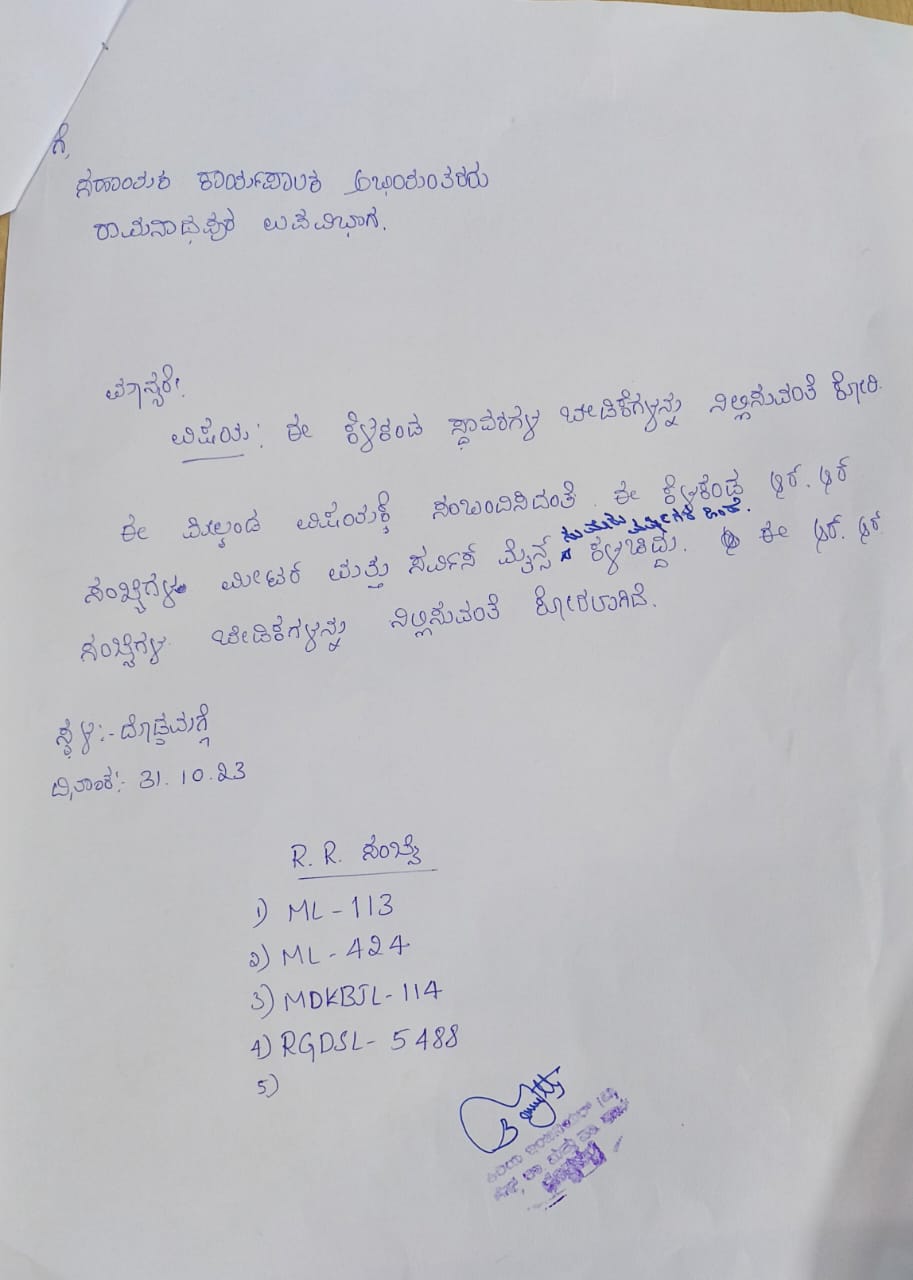 ಗೆ,
ಸಹಾಯಕ ಕಾರ್ಯಪಾಲಕ ಅಭಿಯಂತರರು
ರಾಮನಾಥಪುರ ಉಪವಿಭಾಗ.
ಮಾನ್ಯರೇ,
ವಿಷಯ: ಈ ಕೆಳಕಂಡ ಸ್ಥಾವರಗಳ ಬೇಡಿಕೆಗಳನ್ನು ನಿಲ್ಲಿಸುವಂತೆ ಕೋರಿ.
ಈ ಮೇಲ್ಕಂಡ ವಿಷಯಕ್ಕೆ ಸಂಬಂದಿಸಿದಂತೆ. ಈ ಕೆಳಕಂಡ ಆರ್. ಆರ್
ಸಂಖ್ಯೆಗಳ ಮೀಟರ್ ಮತ್ತು ಸರ್ವಿಸ್ ಮೈನ್ಸ್ ಸುಮಾರು ವರ್ಷಗಳ ಹಿಂದೆ. ಕಳಚಿದ್ದು. ಈ ಆರ್. ಆರ್.
ಸಂಖ್ಯೆಗಳ ಬೇಡಿಕೆಗಳನ್ನು ನಿಲ್ಲಿಸುವಂತೆ ಕೋರಲಾಗಿದೆ.
ಸ್ಥಳ:- ದೊಡ್ಡಮಗ್ಗೆ
ದಿನಾಂಕ:- 31.10.23
R. R. ಸಂಖ್ಯೆ
1) ML - 113
2) ML - 424
3) MDKBJL - 114
4) RGDSL - 5488
5)
ಕಿರಿಯ ಇಂಜಿನಿಯರ್ (ವಿ)